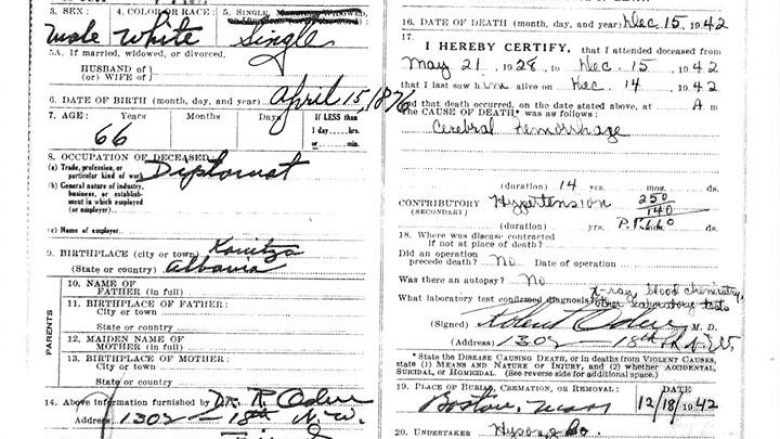 3. SEX: 4. COLOR OR RACE: 5. SINGLE, MARRIED, WIDOWED,
Male White Single
5A. If married, widowed, or divorced,
HUSBAND of
(or) WIFE of
6. DATE OF BIRTH (month, day, and year) April 15, 1876
7. AGE: Years Months Days If LESS than
1 day......hrs.
66
or......min.
8. OCCUPATION OF DECEASED:
(a) Trade, profession, or
particular kind of work Diplomat
(b) General nature of industry,
business, or establish-
ment in which employed
(or employer)
(c) Name of employer
9. BIRTHPLACE (city or town)
(State or country) Albania
PARENTS
10. NAME OF
FATHER (in full)
11. BIRTHPLACE OF FATHER:
City or town
State or country
12. MAIDEN NAME OF
MOTHER (in full)
13. BIRTHPLACE OF MOTHER:
City or town
State or country
14. Above information furnished by DR. R. Oden
Address 1302 - 18th N.W.
16. DATE OF DEATH (month, day, and year) Dec 15, 1942
17.
I HEREBY CERTIFY, that I attended deceased from
May 21 1928 to Dec. 15 1942
that I last saw him alive on Dec. 14 1942
and that death occurred, on the date stated above, at A m
The CAUSE OF DEATH* was as follows:
Cerebral Hemorrhage
(duration) 14 yrs. mos. ds.
CONTRIBUTORY Hypertension 250
(SECONDARY) 140
(duration) yrs. mos. ds.
18. Where was disease contracted
if not at place of death?
Did an operation
precede death? No Date of operation
Was there an autopsy? No
X-ray, blood chemistry,
What laboratory test confirmed diagnosis? other laboratory tests
(Signed) Robert Oden M. D.
(Address) 1302 - 18th St. N.W.
* State the DISEASE CAUSING DEATH, or in deaths from VIOLENT CAUSES,
state (1) MEANS AND NATURE OF INJURY, and (2) whether ACCIDENTAL,
SUICIDAL, or HOMICIDAL. (See reverse side for additional space.)
19. PLACE OF BURIAL, CREMATION, OR REMOVAL: DATE
Boston, Mass 12/18/1942
20. UNDERTAKER Hysong Co.